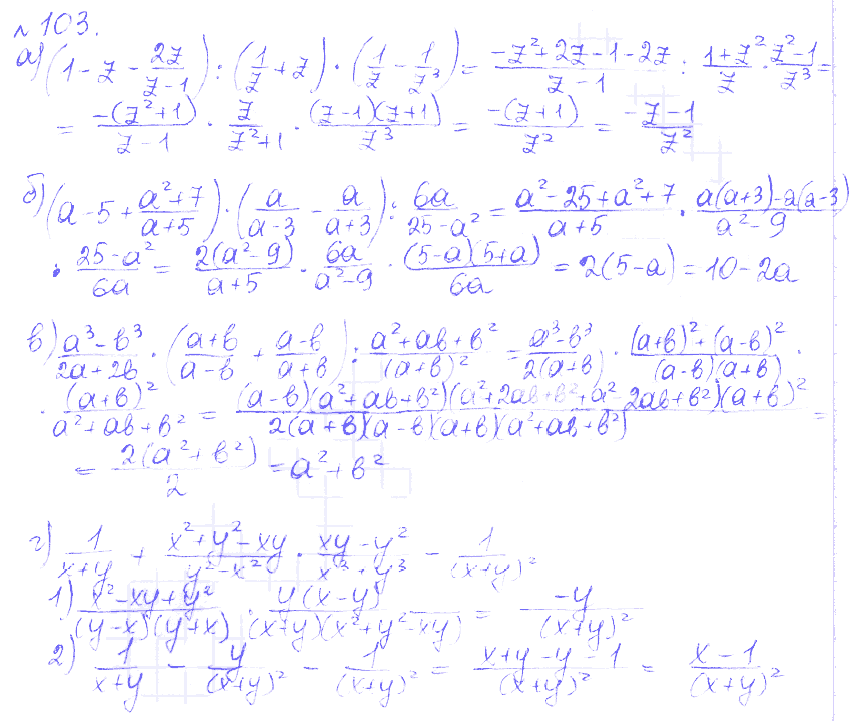 №103.
а) (1 - z - 2z/(z-1)) : (1/z + z) · (1/z - 1/z³) = (-z² + 2z - 1 - 2z)/(z-1) : (1+z²)/z · (z²-1)/z³ =
= -(z²+1)/(z-1) · z/(z²+1) · (z-1)(z+1)/z³ = -(z+1)/z² = (-z-1)/z²
б) (a - 5 + (a²+7)/(a+5)) · (a/(a-3) - a/(a+3)) : 6a/(25-a²) = (a² - 25 + a² + 7)/(a+5) · (a(a+3) - a(a-3))/(a²-9)
· (25-a²)/6a = 2(a²-9)/(a+5) · 6a/(a²-9) · (5-a)(5+a)/6a = 2(5-a) = 10 - 2a
в) (a³-в³)/(2a+2в) · ((a+в)/(a-в) + (a-в)/(a+в)) : (a²+aв+в²)/(a+в)² = (a³-в³)/2(a+в) · ((a+в)²+(a-в)²)/(a-в)(a+в) ·
· (a+в)²/(a²+aв+в²) = (a-в)(a²+aв+в²)(a²+2aв+в²+a² 2aв+в²)(a+в)²/2(a+в)(a-в)(a+в)(a²+aв+в²) =
= 2(a²+в²)/2 = a²+в²
г) 1/(x+y) + (x²+y²-xy)/(y²-x²) · (xy-y²)/(x³+y³) - 1/(x+y)²
1) (x²-xy+y²)/(y-x)(y+x) · y(x-y)/(x+y)(x²+y²-xy) = -y/(x+y)²
2) 1/(x+y) - y/(x+y)² - 1/(x+y)² = (x+y-y-1)/(x+y)² = (x-1)/(x+y)²